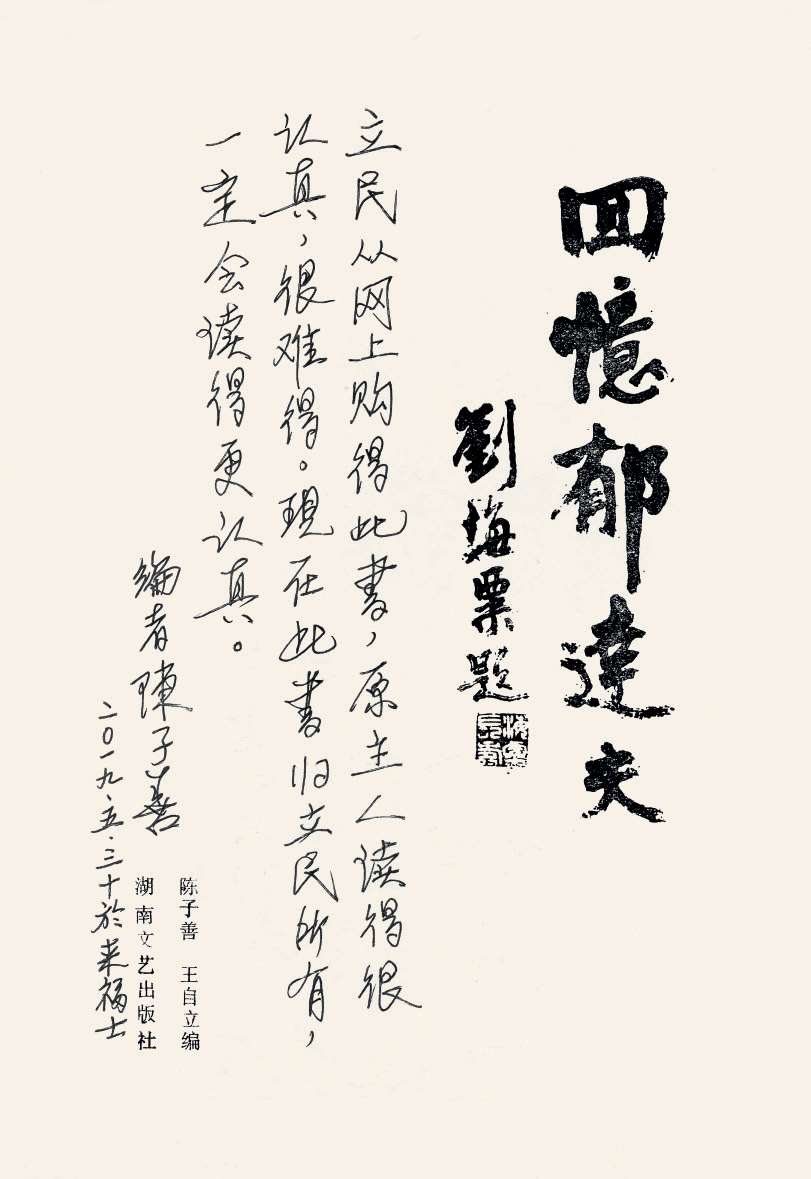 回憶郁達夫
劉海粟题
立民从网上购得此书，原主人读得很
认真，很难得。現在此书归立民所有，
一定会读得更认真。
编者陳子善
二〇一九.五.三十於来福士
陈子善 王自立编
湖南文艺出版社